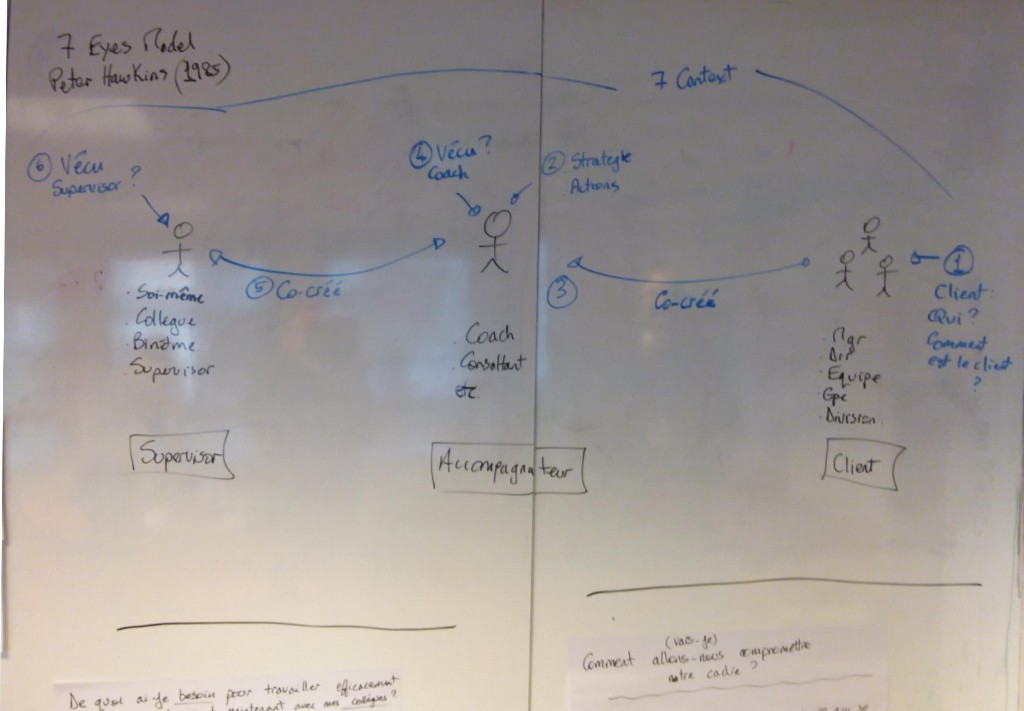 7 Eyes Model
Peter Hawkins (1985)
7 Context
6 Vécu
Supervisor ?
4 Vécu ?
Coach
2 Strategie
Actions
5 Co-créé
3
Co-créé
1
Client
Qui ?
Comment
est le client
?
. Soi-même
. Collegue
. Binôme
. Supervisor
. Coach
. Consultant
etc
. Mgr
. Equipe
. Gpe
. Division
Supervisor
Accompagnateur
Client
De quoi ai-je besoin pour travailler efficacement
maintenant avec mes collègues ?
(vais-je)
Comment allons-nous compromettre
notre cadre ?